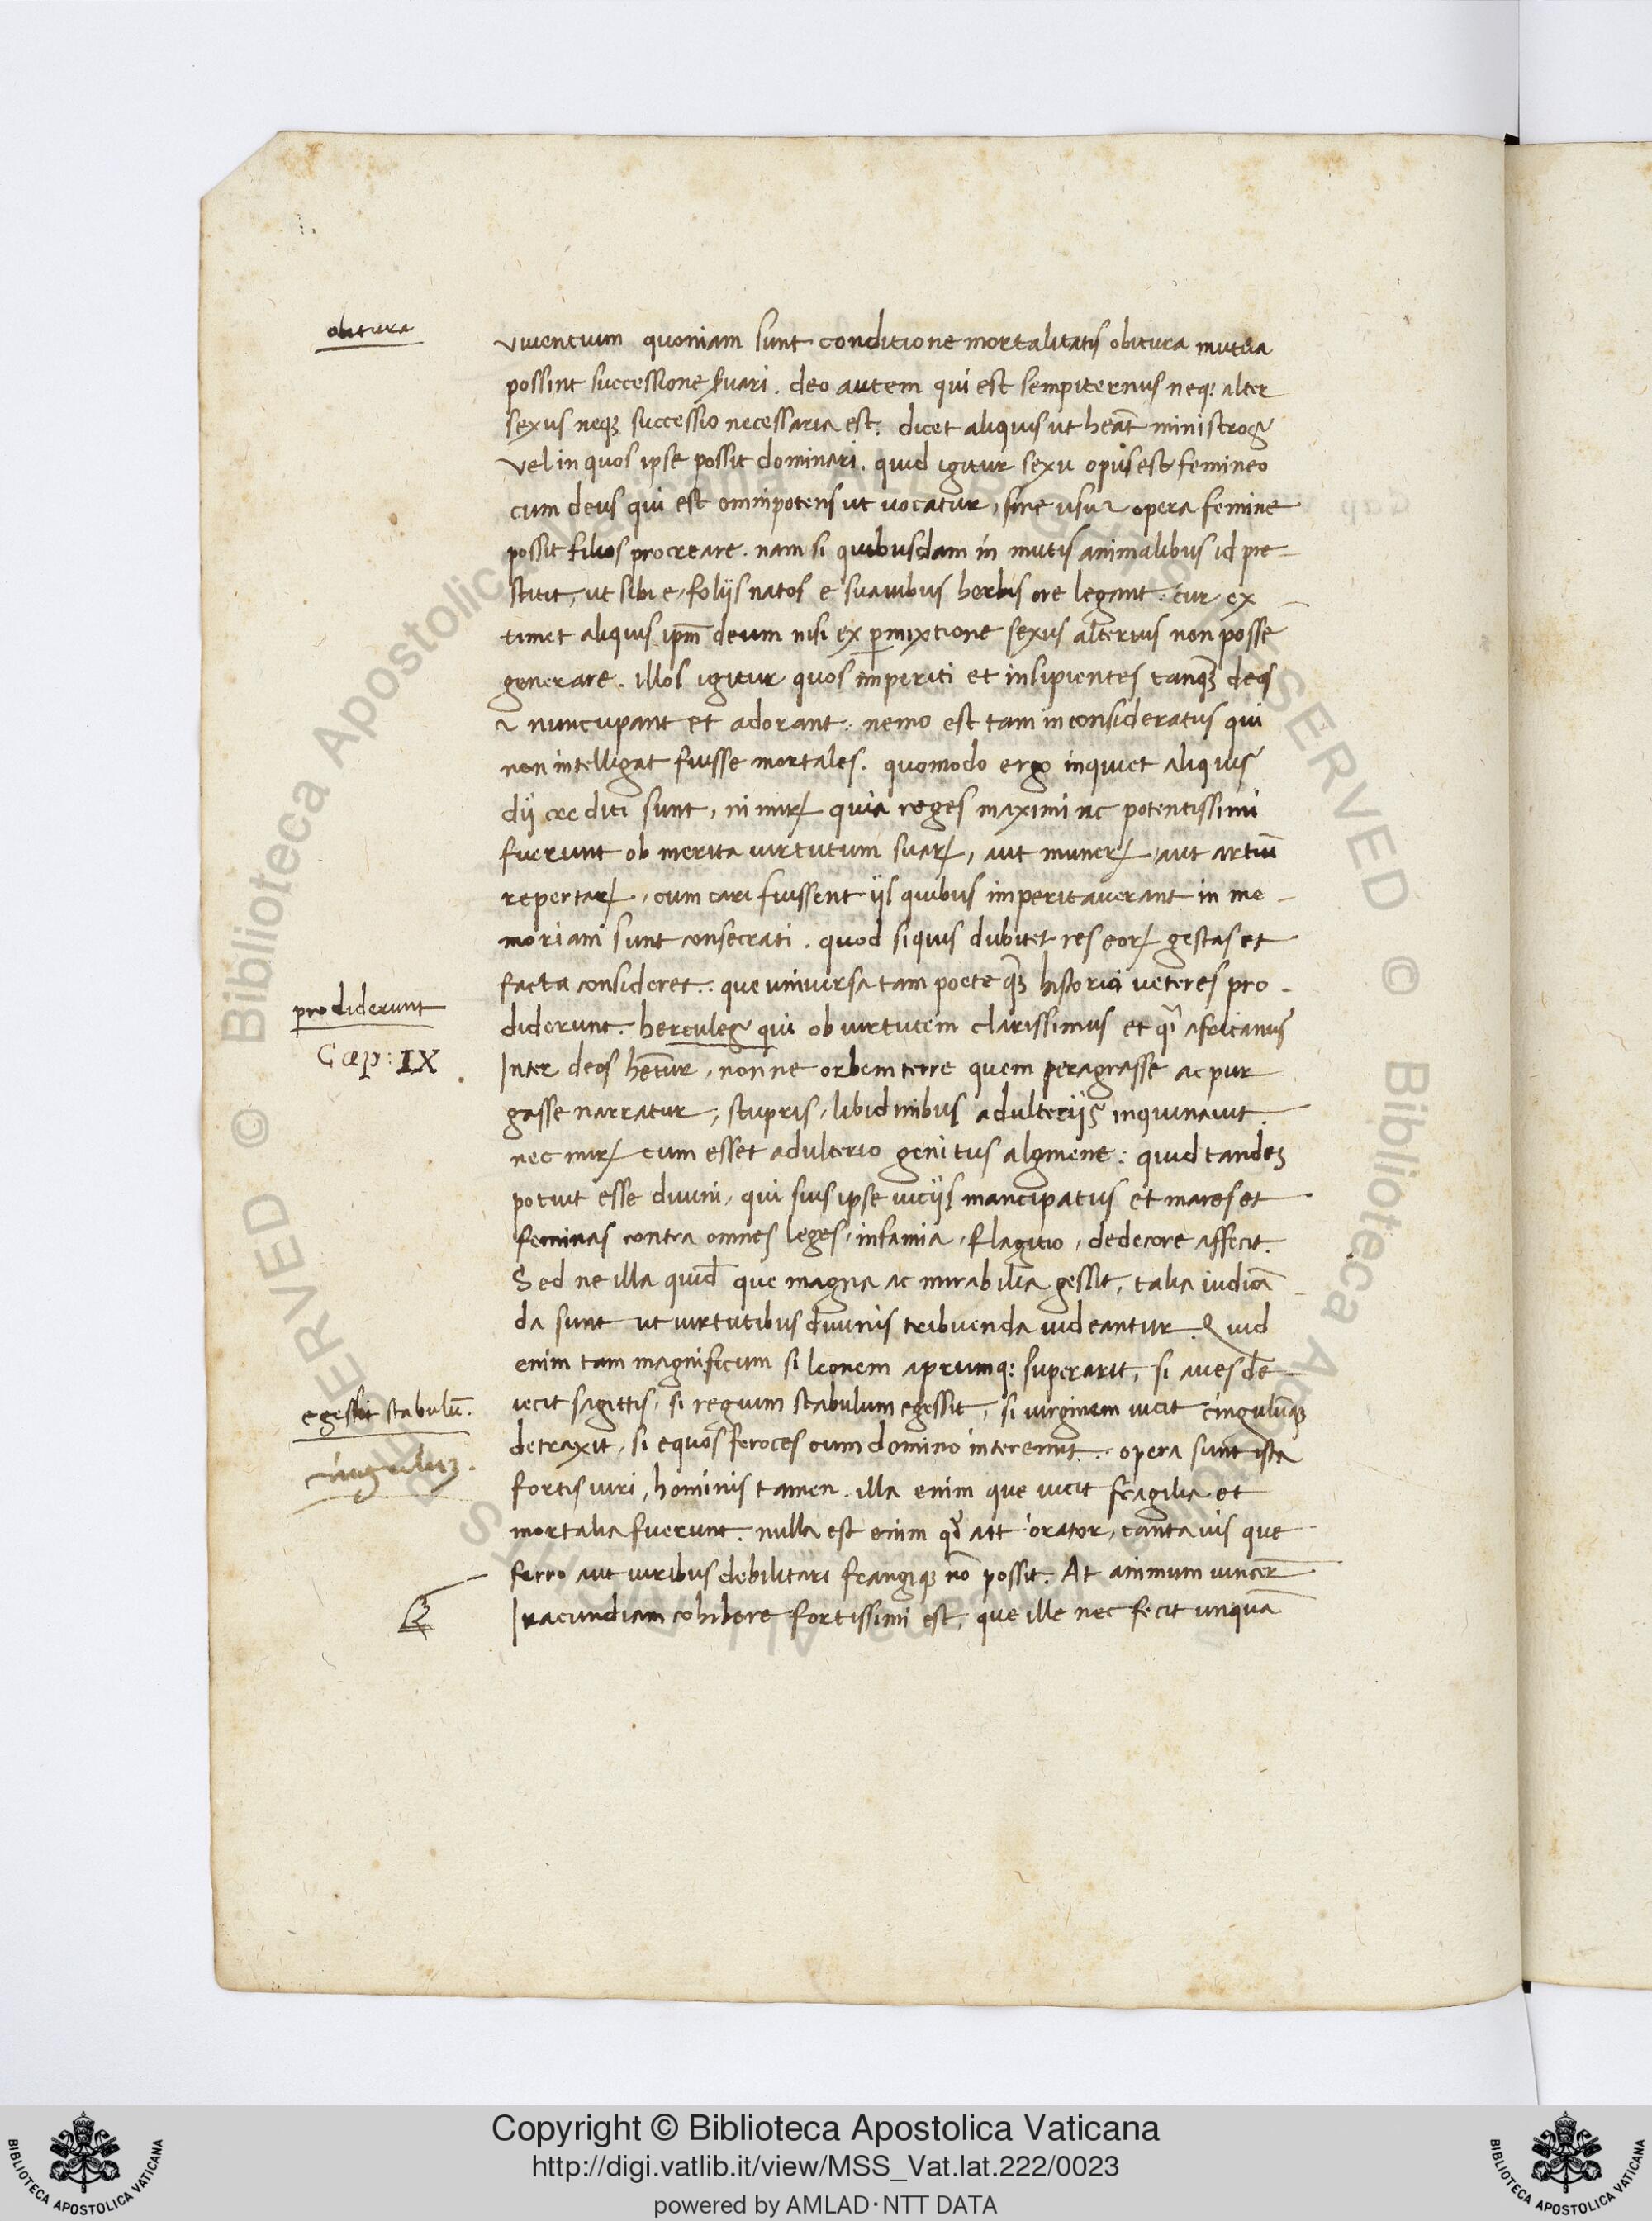 obitura
viuentium quoniam sunt conditione mortalitatis obitura mutua
possint successione s̃uari. deo autem qui est sempiternus neq; alter
sexus neqꝫ successio necessaria est. dicet aliquis ut heãt ministros
vel in quos ipse possit dominari. quid igitur sexu opus est femineo
cum deus qui est omnipotens ut uocatur, sine usu ⁊ opera femine
possit filios procreare. nam si quibusdam in mutis animalibus id pre
stitit, ut sibi e foliis natos e suauibus herbis ore legant. cur ex
timet aliquis ipm̃ deum nisi ex ꝑmixtione sexus alterius non posse
generare. illos igitur quos imperiti et insipientes tanqꝫ deos
⁊ nuncupant et adorant. nemo est tam inconsideratus qui
non intelligat fuisse mortales. quomodo ergo inquiet aliquis
dij crediti sunt, ni mirꝝ quia reges maximi ac potentissimi
fuerunt ob merita uirtutum suaꝝ, aut muneꝝ, aut artiũ
repertaꝝ, cum cari fuissent ijs quibus imperitauerant in me
moriam sunt consecrati. quod siquis dubitet res eoꝝ gestas et
facta consideret. que uniuersa tam poete qꝫ historici ueteres pro
prodiderunt
diderunt. hercules qui ob uirtutem clarissimus et qͥ africanus
Cap: IX
Inter deos hẽtur, nonne orbem terre quem peragrasse ac pur
gasse narratur, stupris, libidinibus adulterijs inquinauit.
nec mirꝝ cum esset adulterio genitus algmene: quid tandeꝫ
potuit esse diuini, qui suis ipse uicijs mancipatus et mares et
feminas contra omnes leges, infamia, flagitio, dedecore affecit.
Sed ne illa quid̃ que magna ac mirabilia gessit, talia iudicã
da sunt ut uirtutibus diuinis tribuenda uideantur. Quid
enim tam magnificum si leonem aprumq; superarit, si aues de
egessit stabulũ.
iecit sagittis, si regium stabulum egessit, si uirginem uicit cingulũqꝫ
cinguluꝫ.
detraxit, si equos feroces cum domino interemit. opera sunt ista
fortis uiri, hominis tamen. illa enim que uicit fragilia et
mortalia fuerunt. nulla est enim qd̃ ait orator, tanta uis que
ferro aut uiribus debilitari frangiqꝫ nõ possit. At animum uincer̃
Iracundiam cohibere fortissimi est, que ille nec fecit unquã
Copyright © Biblioteca Apostolica Vaticana
http://digi.vatlib.it/view/MSS_Vat.lat.222/0023
powered by AMLAD·NTT DATA
BIBLIOTECA APOSTOLICA VATICANA
BIBLIOTECA APOSTOLICA VATICANA